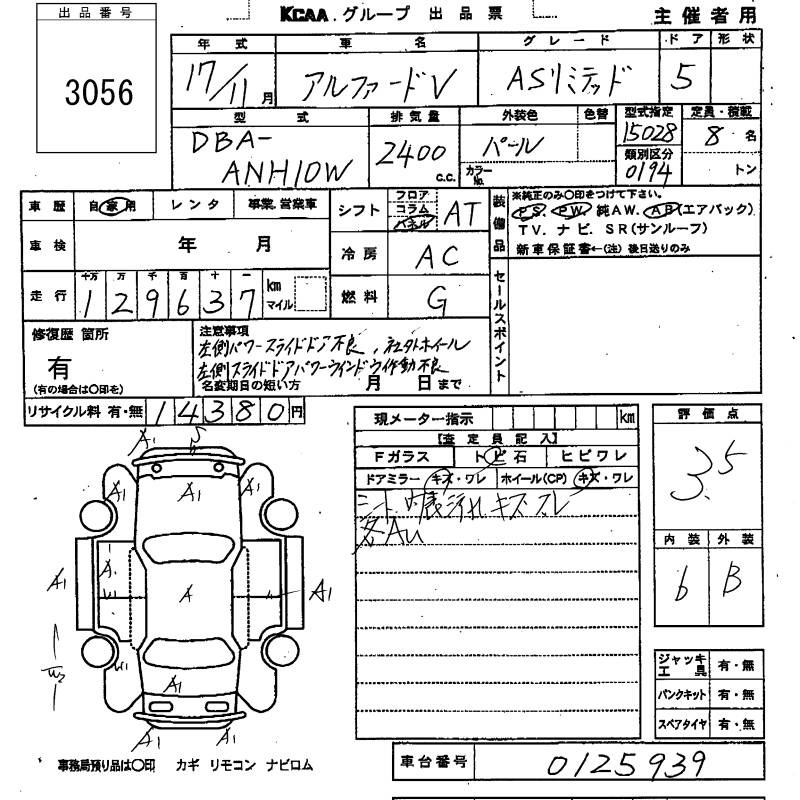 出品番号
3056
KCAA.グループ 出品票
主催者用
年式 車名 グレード ドア 形状
17/11月 アルファードV ASリミテッド 5
型式 排気量 外装色 色替 型式指定 定員・積載
DBA-ANH10W 2400 c.c. パール 15028 8名
カラーNo. 類別区分 0194 トン
車歴 自家用 レンタ 事業.営業車
シフト フロア コラム パネル AT
装備品 ※純正のみ○印をつけて下さい。
PS. PW. 純AW. AB(エアバック)
TV. ナビ. SR(サンルーフ)
新車保証書←(注) 後日送りのみ
車検 年 月
冷房 AC
走行 十万 万 千 百 十 一
129637 km マイル
燃料 G
セールスポイント
修復歴 箇所
有
(有の場合は○印を)
注意事項
左側パワースライドドア不良、社外ホイール
左側スライドドアパワーウインドウ作動不良
名変期日の短い方 月 日まで
リサイクル料 有・無 14380円
現メーター指示 km
【査定員記入】
Fガラス トビ石 ヒビワレ
ドアミラー キズ・ワレ ホイール(CP) キズ・ワレ
シート 内装汚れ キズ スレ
Au
評価点
3.5
内装 外装
6 B
A1 S
A1 A1 A1
A1 A A1
W1
W2
W1
A1
A1 A1
ジャッキ工具 有・無
パンクキット 有・無
スペアタイヤ 有・無
事務局預り品は○印 カギ リモコン ナビロム
車台番号 0125939